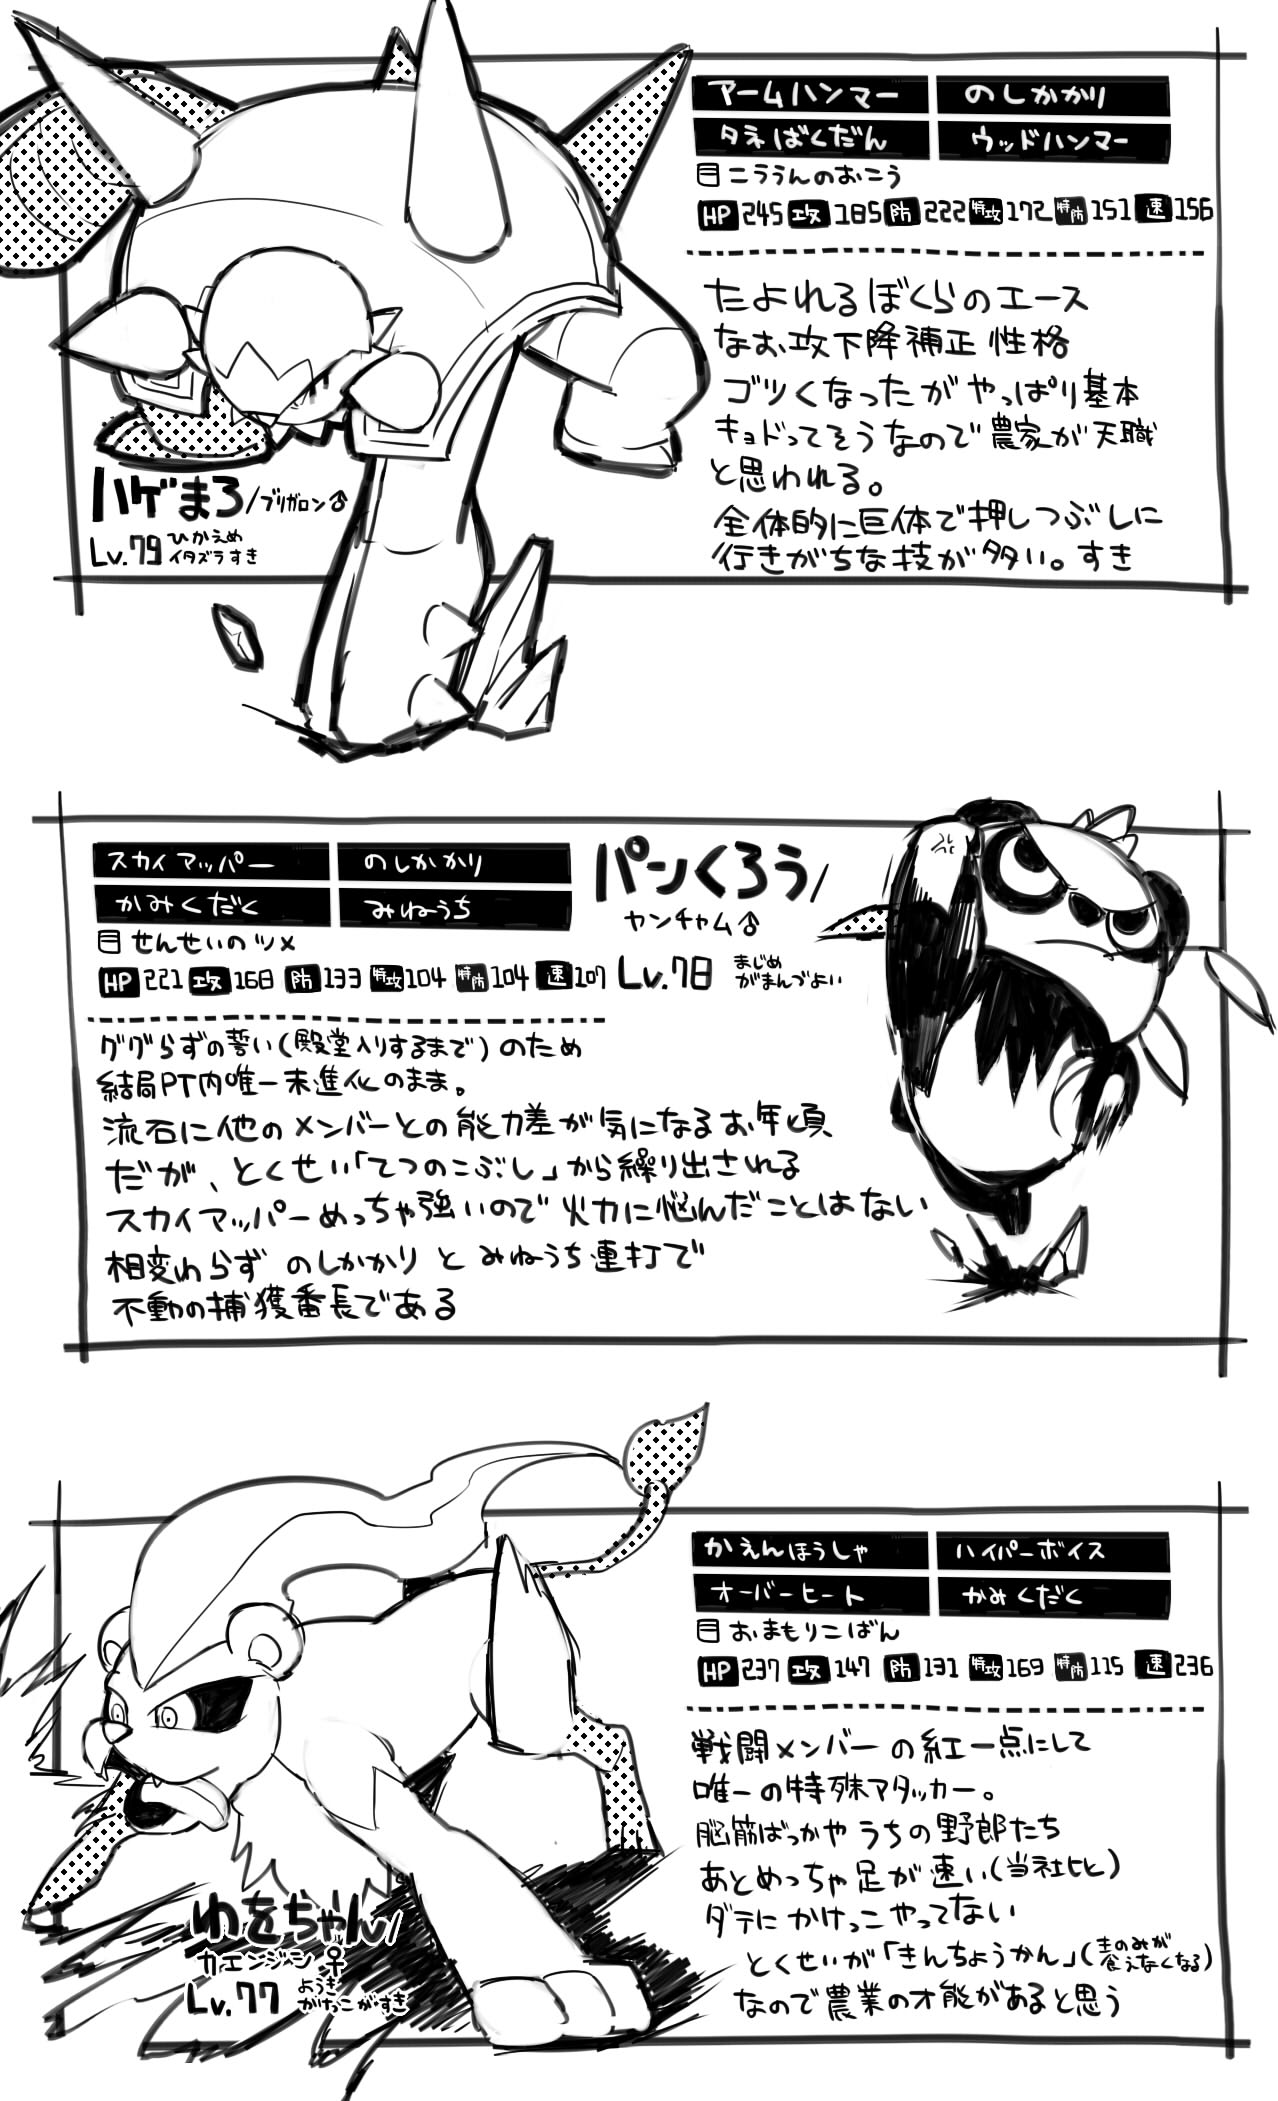 アームハンマー のしかかり
タネばくだん ウッドハンマー
こううんのおこう
HP 245 攻 185 防 222 特攻 172 特防 151 速 156
たよれるぼくらのエース
なお攻下降補正性格
ゴツくなったがやっぱり基本
キョドってそうなので農家が天職
と思われる。
全体的に巨体で押しつぶしに
行きがちな技が多い。すき
ハゲまろ/ブリガロン♂
Lv.79 ひかえめ
イタズラすき
スカイアッパー のしかかり
かみくだく みねうち
せんせいのツメ
HP 221 攻 168 防 133 特攻 104 特防 104 速 107
パンくろう/
ヤンチャム♂
Lv.78 まじめ
がまんづよい
ググらずの誓い(殿堂入りするまで)のため
結局PT内唯一未進化のまま。
流石に他のメンバーとの能力差が気になるお年頃
だが、とくせい「てつのこぶし」から繰り出される
スカイアッパーめっちゃ強いので火力に悩んだことはない
相変わらず のしかかり と みねうち連打で
不動の捕獲番長である
かえんほうしゃ ハイパーボイス
オーバーヒート かみくだく
おまもりこばん
HP 237 攻 147 防 131 特攻 169 特防 115 速 236
戦闘メンバーの紅一点にして
唯一の特殊アタッカー。
脳筋ばっかやうちの野郎たち
あとめっちゃ足が速い(当社比)
ダテにかけっこやってない
とくせいが「きんちょうかん」(きのみが食えなくなる)
なので農業の才能があると思う
わをちゃん/
カエンジシ♀
Lv.77 ようき
かけっこがすき